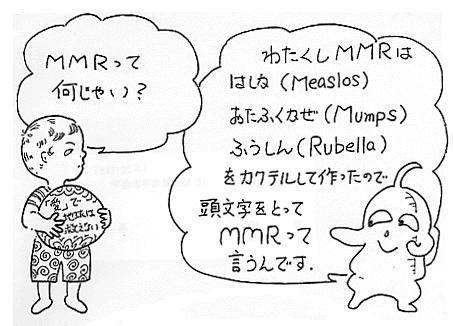 MMRって
何じゃい？
わたくしMMRは
はしか (Measlos)
おたふくかぜ (Mumps)
ふうしん (Rubella)
をカクテルして作ったので
頭文字をとって
MMRって
言うんです.
「愛」で
地球は
救えない